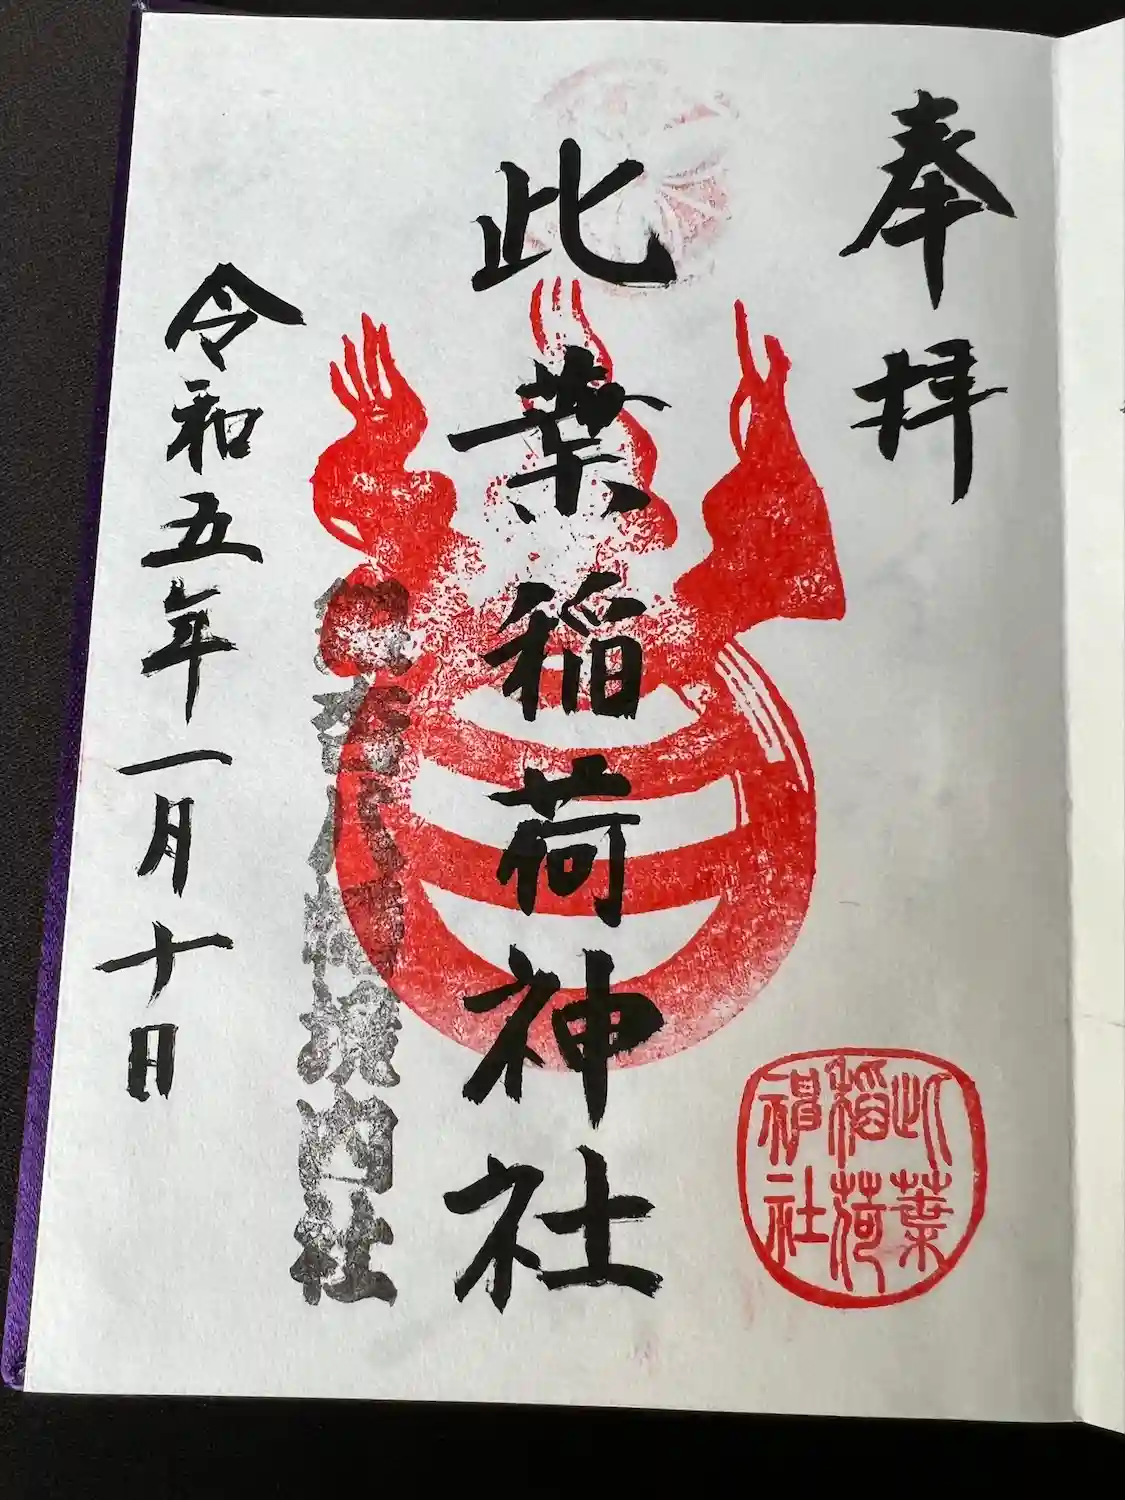 奉拝
此葉稲荷神社
八幡境内社
令和五年一月十日
此葉
稲荷
神社